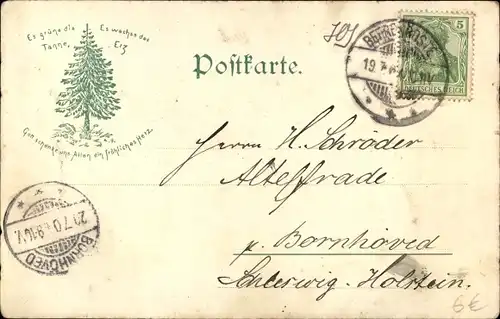 Es grüne die Tanne,
Es wachse das Erz
Gott schenke uns Allen ein fröhliches Herz.
Postkarte.
5
DEUTSCHES REICH
19.7.
Herrn H. Schröder
Altefrade
p. Bornhöved
Schleswig-Holstein.
BORNHÖVED
20.7.0
6€